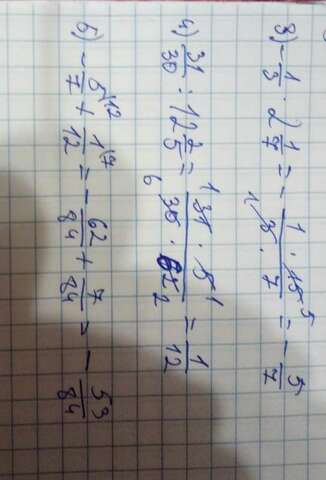 3) - 1/3 · 2 1/7 = - 1 · 15 5 / 1 3 · 7 = - 5/7
4) 31/30 : 12 2/5 = 1 31 · 5 1 / 6 30 · 62 2 = 1/12
5) - 5\12/7 + 1\7/12 = - 62/84 + 7/84 = - 53/84